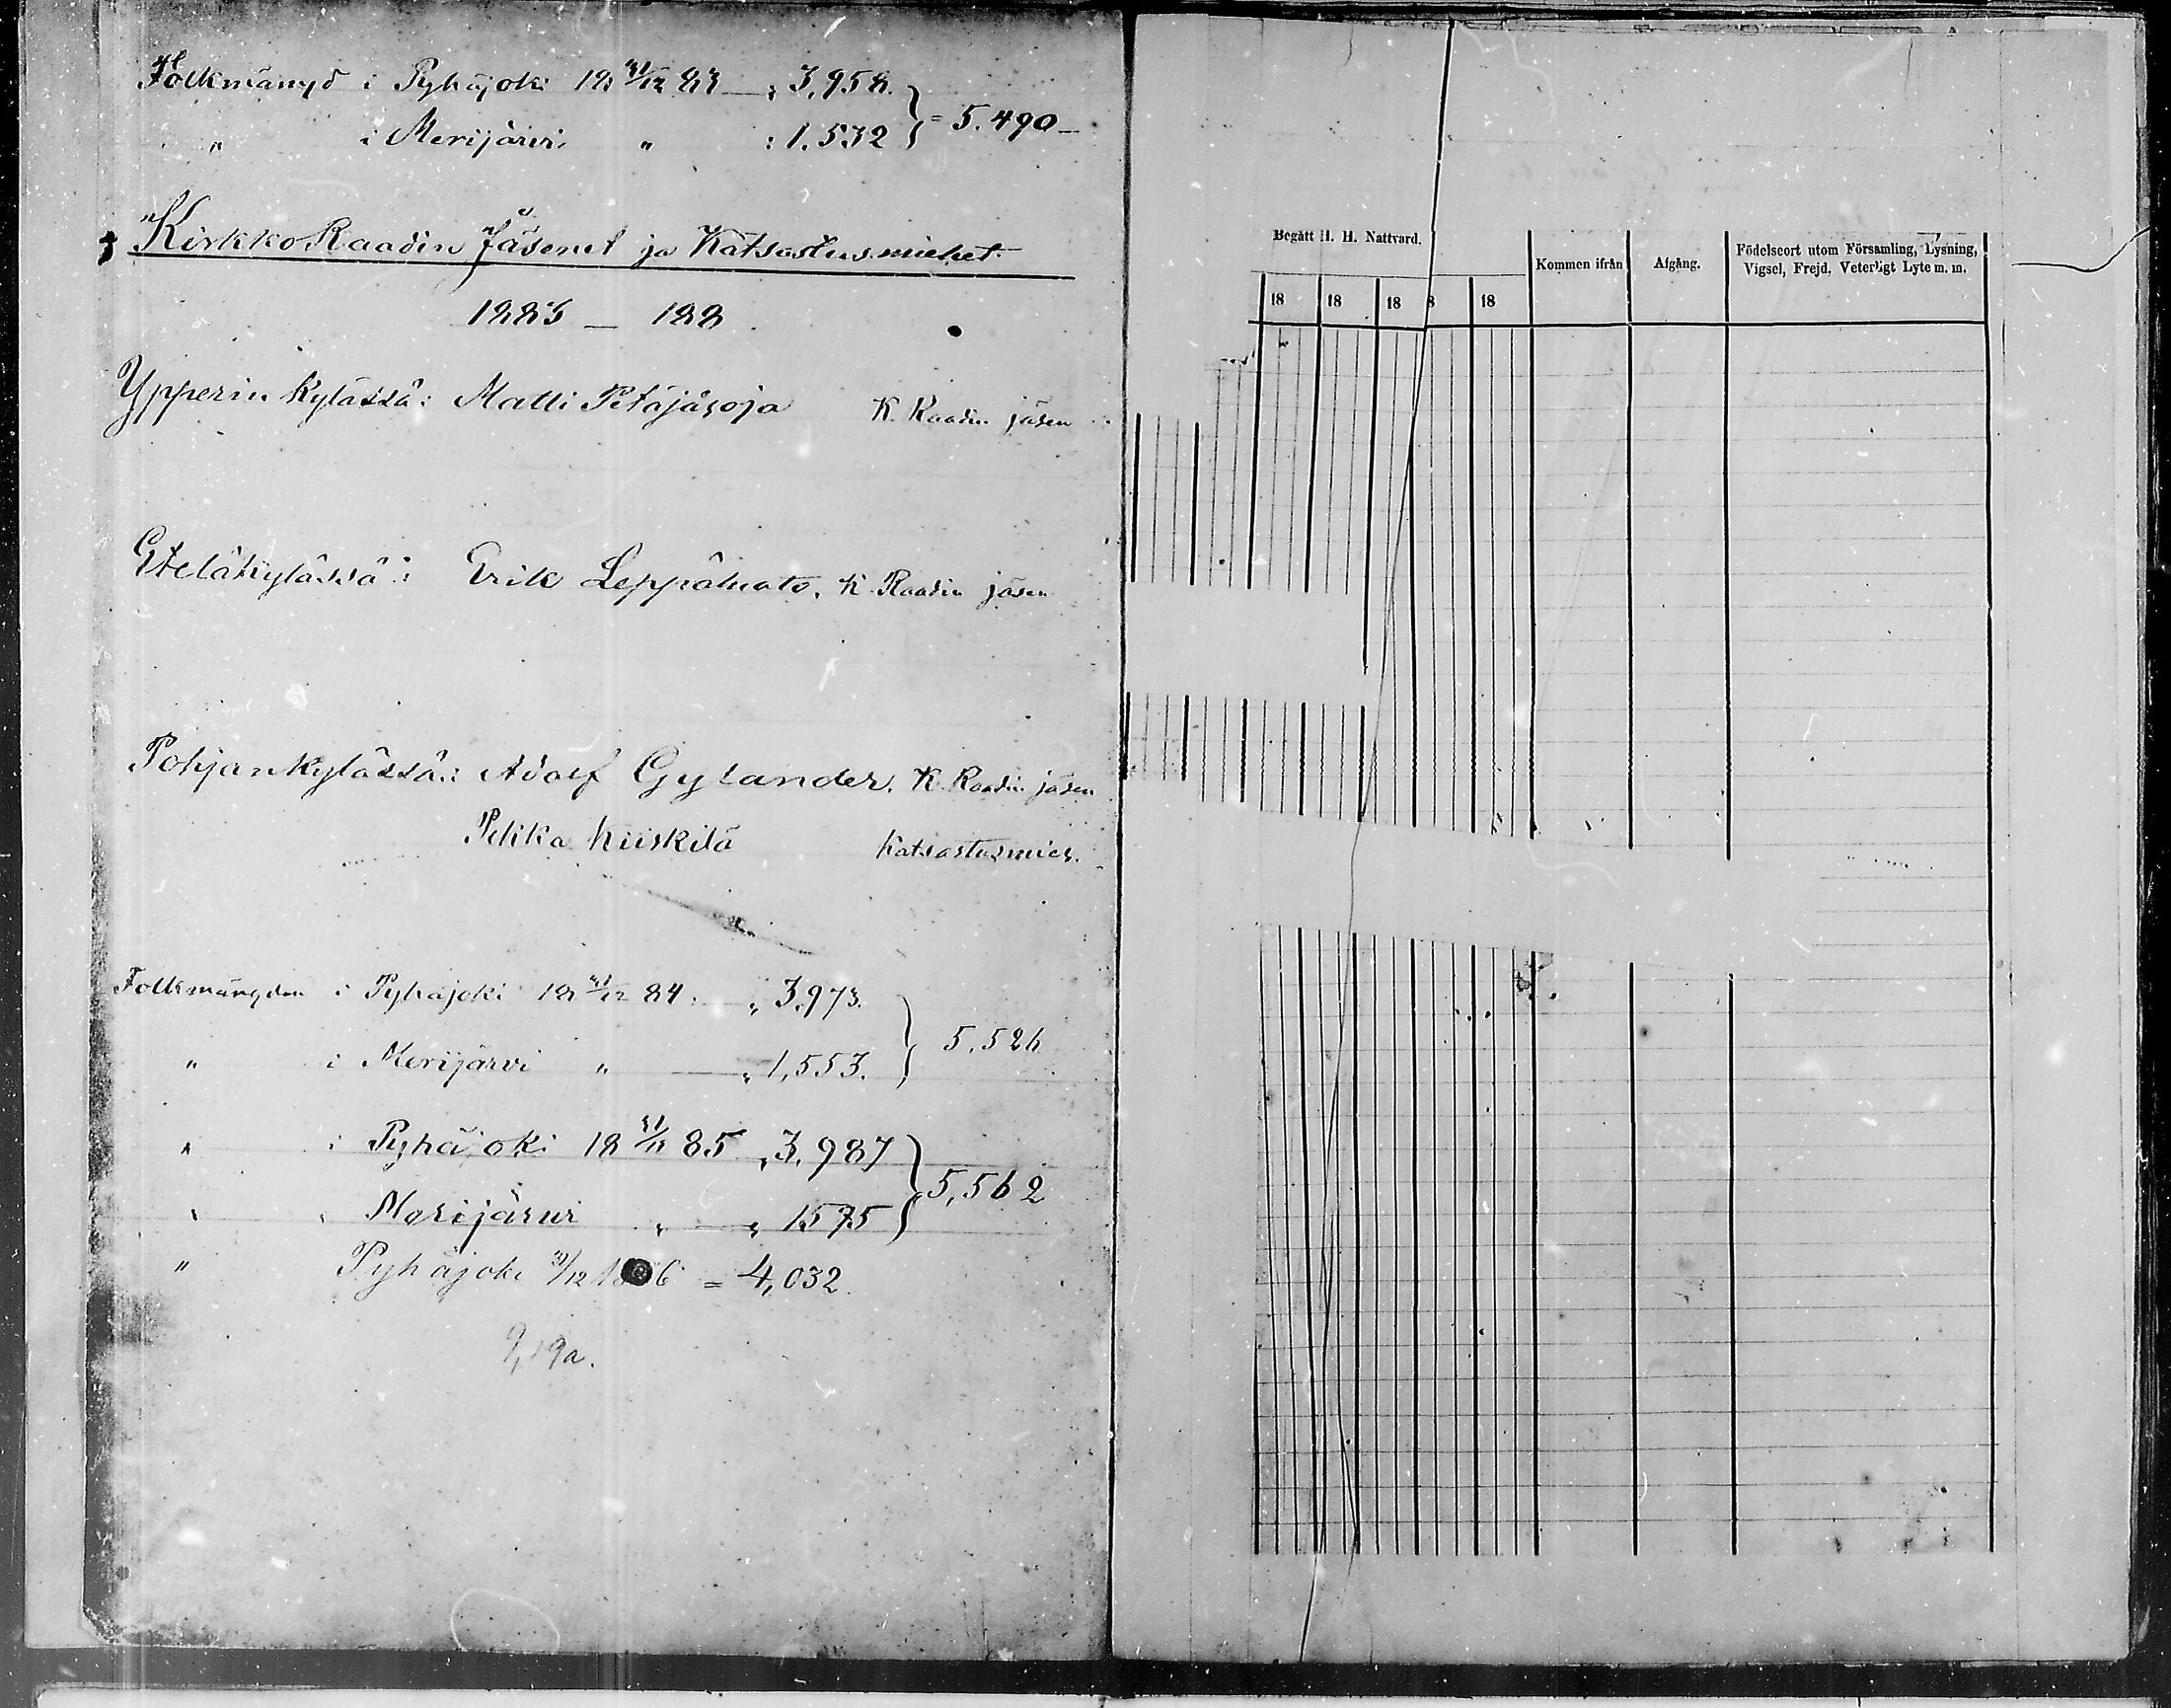 Folkmängd i Pyhäjoki 18 31/12 83 — : 3,958.
" i Merijärvi " : 1.532 } = 5.490 —
Kirkko Raadin Jäsenet ja Katsastusmiehet.
1883 — 188
Ypperin Kylässä: Matti Petäjäsoja K. Raadin jäsen
Eteläkylässä: Erik Leppäluoto. K. Raadin jäsen
Pohjankylässä: Adolf Gylander. K. Raadin jäsen
Pekka Kiiskilä Katsastusmies.
Folkmängden i Pyhäjoki 18 31/12 84. — „ 3,973.
" i Merijärvi " — „ 1,553. } 5,526
" i Pyhäjoki 18 31/12 85 „ 3,987
" " Merijärvi „ — „ 1575 } 5,562
" Pyhäjoki 31/12 1886 = 4,032.
Begått H. H. Nattvard.
Kommen ifrån
Afgång.
Födelseort utom Församling, Lysning,
Vigsel, Frejd, Veterligt Lyte m. m.
18 18 18 8 18